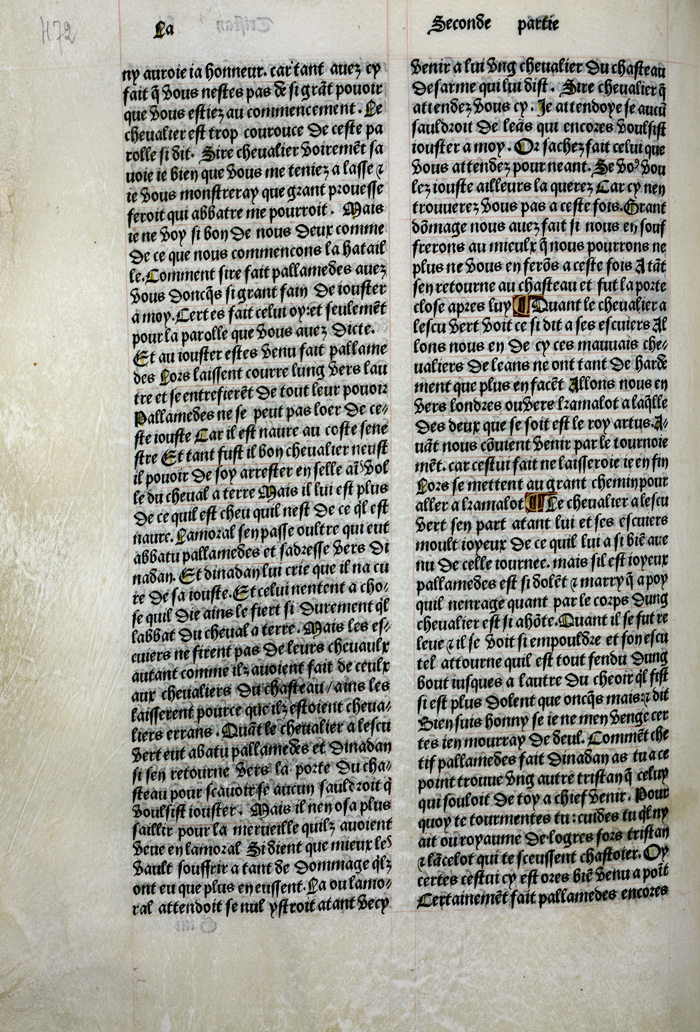 472
La
Seconde partie
ny auroie ia honneur. car tant auez cy
fait q̃ vous nestes pas de si grãt pouoir
que vous estiez au commencement. Le
cheualier est trop courouce de ceste pa
rolle si dit. Sire cheualier voiremẽt sa
uoie ie bien que vous me teniez a lasse ⁊
ie vous monstreray que grant prouesse
feroit qui abbatre me pourroit. Mais
ie ne voy si bon de nous deux comme
de ce que nous commencons la batail
le. Comment sire fait pallamedes auez
vous doncq̃s si grant fain de iouster
a moy. Certes fait celui oy: et seulemẽt
pour la parolle que vous auez dicte.
Et au iouster estes venu fait pallame
des Lors laissent courre lung vers lau
tre et se entrefierẽt de tout leur pouoir
Pallamedes ne se peut pas loer de ce-
ste iouste Car il est naure au coste sene
stre Et tant fust il bon cheualier neust
il pouoir de soy arrester en selle aĩs vol
le du cheual a terre Mais il lui est plus
de ce quil est cheu quil nest de ce q̃l est
naure. Lamoral sen passe oultre qui eut
abbatu pallamedes et sadresse vers di
nadan. Et dinadan lui crie que il na cu
re de sa iouste. Et celui nentent a cho-
se quil die ains le fiert si durement q̃l
labbat du cheual a terre. Mais les es-
cuiers ne firent pas de leurs cheuaulx
autant comme ilz auoient fait de ceulx
aux cheualiers du chasteau/ ains les
laisserent pource que ilz estoient cheua-
liers errans. Quãt le cheualier a lescu
vert eut abatu pallamedes et dinadan
si sen retourne vers la porte du cha-
steau pour scauoir se aucun sauldroit q̃
voulsist iouster. Mais il nen osa plus
saillir pour la merueille quilz auoient
veue en lamoral Si dient que mieux leᷤ
vault souffrir a tant de dommage q̃lz
ont eu que plus en eussent. La ou lamo-
ral attendoit se nul ystroit atant vecy
venir a lui vng cheualier du chasteau
desarme qui lui dist. Sire cheualier q̃
attendez vous cy. Je attendoye se aucũ
sauldroit de leãs qui encores voulsist
iouster a moy. Or sachez fait celui que
vous attendez pour neant. Se voꝰ vou
lez iouste ailleurs la querez Car cy nen
trouuerez vous pas a ceste fois. Grant
dõmage nous auez fait si nous en souf
frerons au mieulx q̃ nous pourrons ne
plus ne vous en ferõs a ceste fois Atãt
sen retourne au chasteau et fut la porte
close apres luy ¶ Quant le cheualier a
lescu vert voit ce si dit a ses escuiers Al
lons nous en de cy ces mauuais che-
ualiers de leans ne ont tant de harde
ment que plus en facẽt Allons nous en
vers londres ou vers kramalot a laq̃lle
des deux que se soit est le roy artus. A-
uãt nous cõuient venir par le tournoie
mẽt. car cestui fait ne laisseroie ie en fin
Lors se mettent au grant chemin pour
aller a kramalot ¶ Le cheualier a lescu
vert sen part atant lui et ses escuiers
moult ioyeux de ce quil lui a si biẽ aue
nu de celle iournee. mais sil est ioyeux
pallamedes est si dolẽt ⁊ marry q̃ a poy
quil nenrage quant par le corps dung
cheualier est si ahõte. Quant il se fut re
leue ⁊ il se voit si empouldre et son escu
tel attourne quil est tout fendu dung
bout iusques a lautre du cheoir q̃l fist
si est plus dolent que oncq̃s mais: ⁊ dit
Bien suis honny se ie ne men venge cer
tes ien mourray de deul. Commẽt che
tif pallamedes fait dinadan as tu a ce
point trouue vng autre tristan q̃ celuy
qui souloit de toy a chief venir. Pour
quoy te tourmentes tu: cuides tu q̃l ny
ait ou royaume de logres fors tristan
⁊ lãcelot qui te sceussent chastoier. Oy
certes cestui cy est ores biẽ venu a poĩt
Certainemẽt fait pallamedes encores